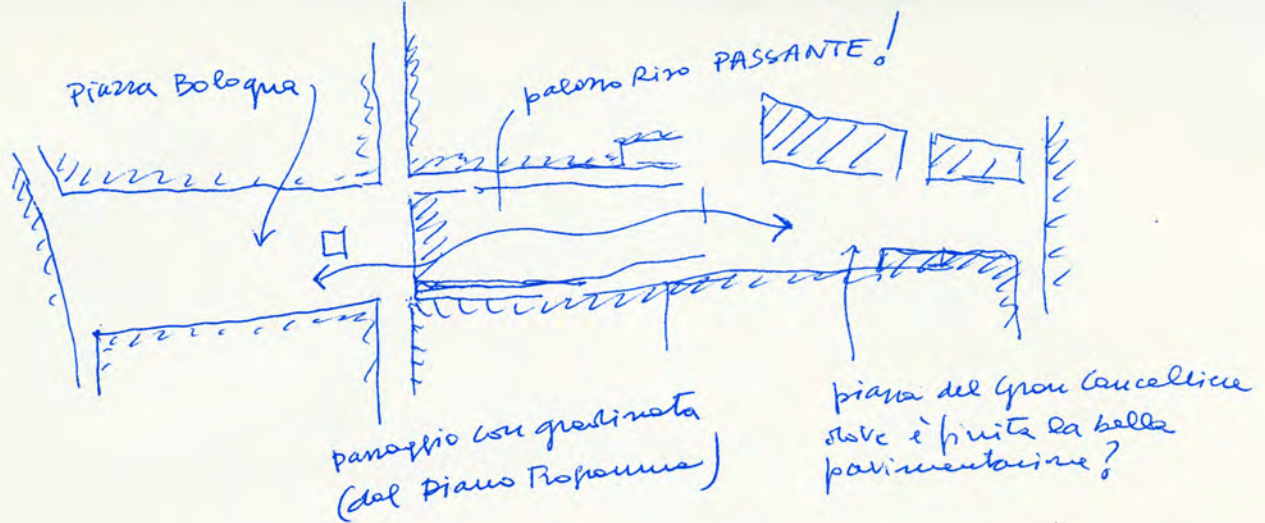 Piazza Bologna
palazzo Riso PASSANTE!
passaggio con gradinata
(dal Piano Programma)
piazza del Gran Cancelliere
dove è finita la bella
pavimentazione?